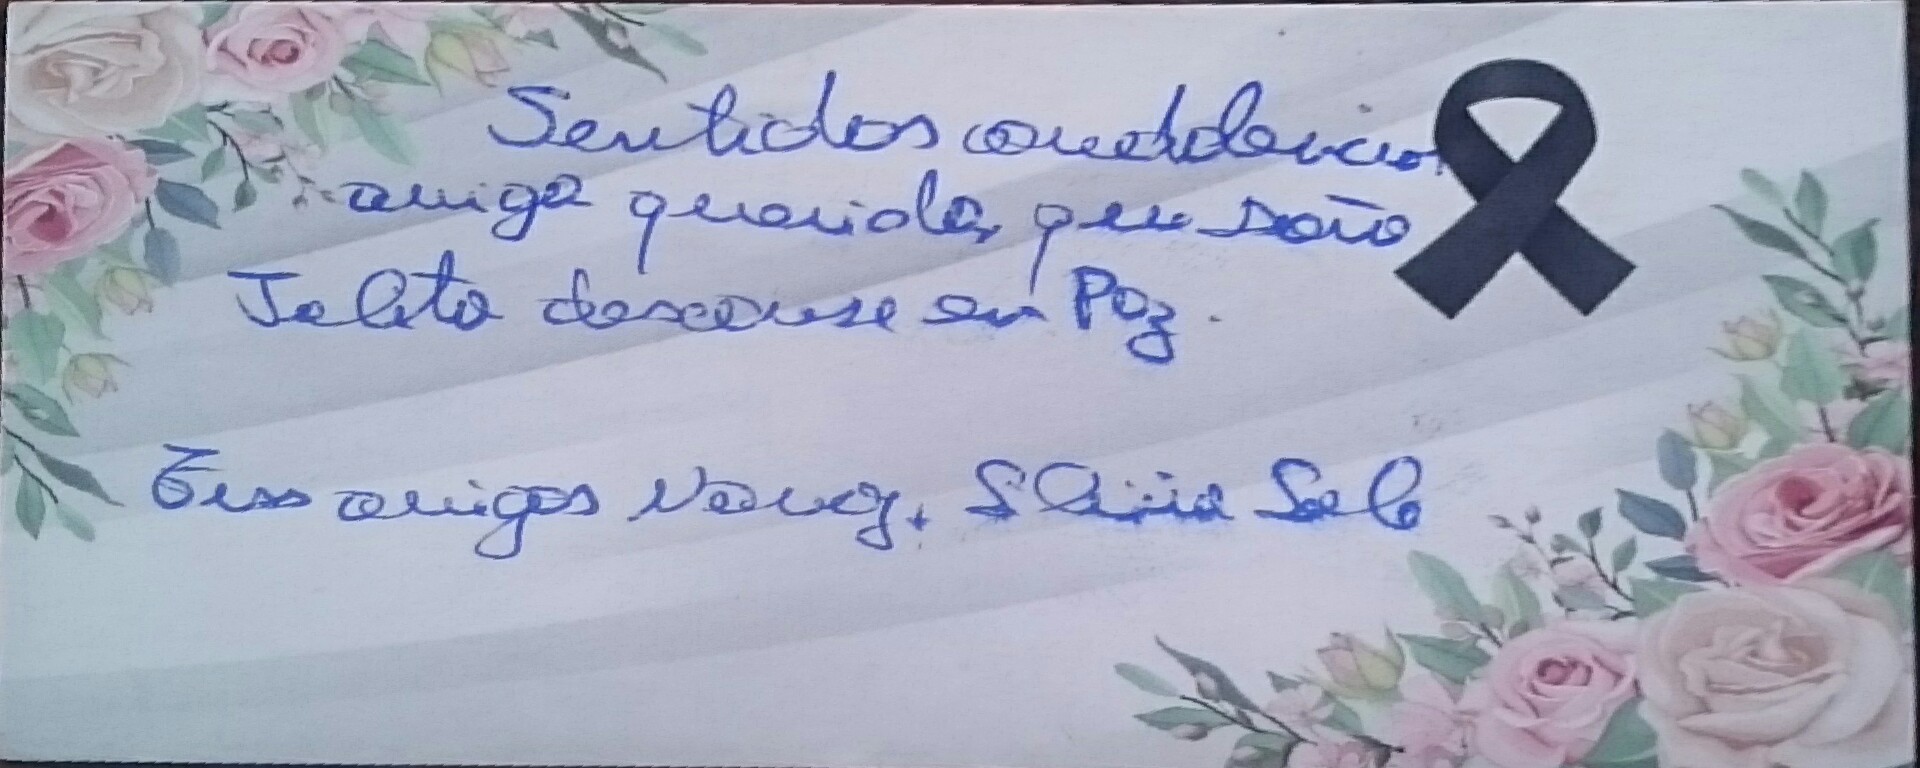 Sentidos condolencias
amiga querida, que doña
Julita descanse en Paz.
Tus amigos Nancy, Silvia Salo